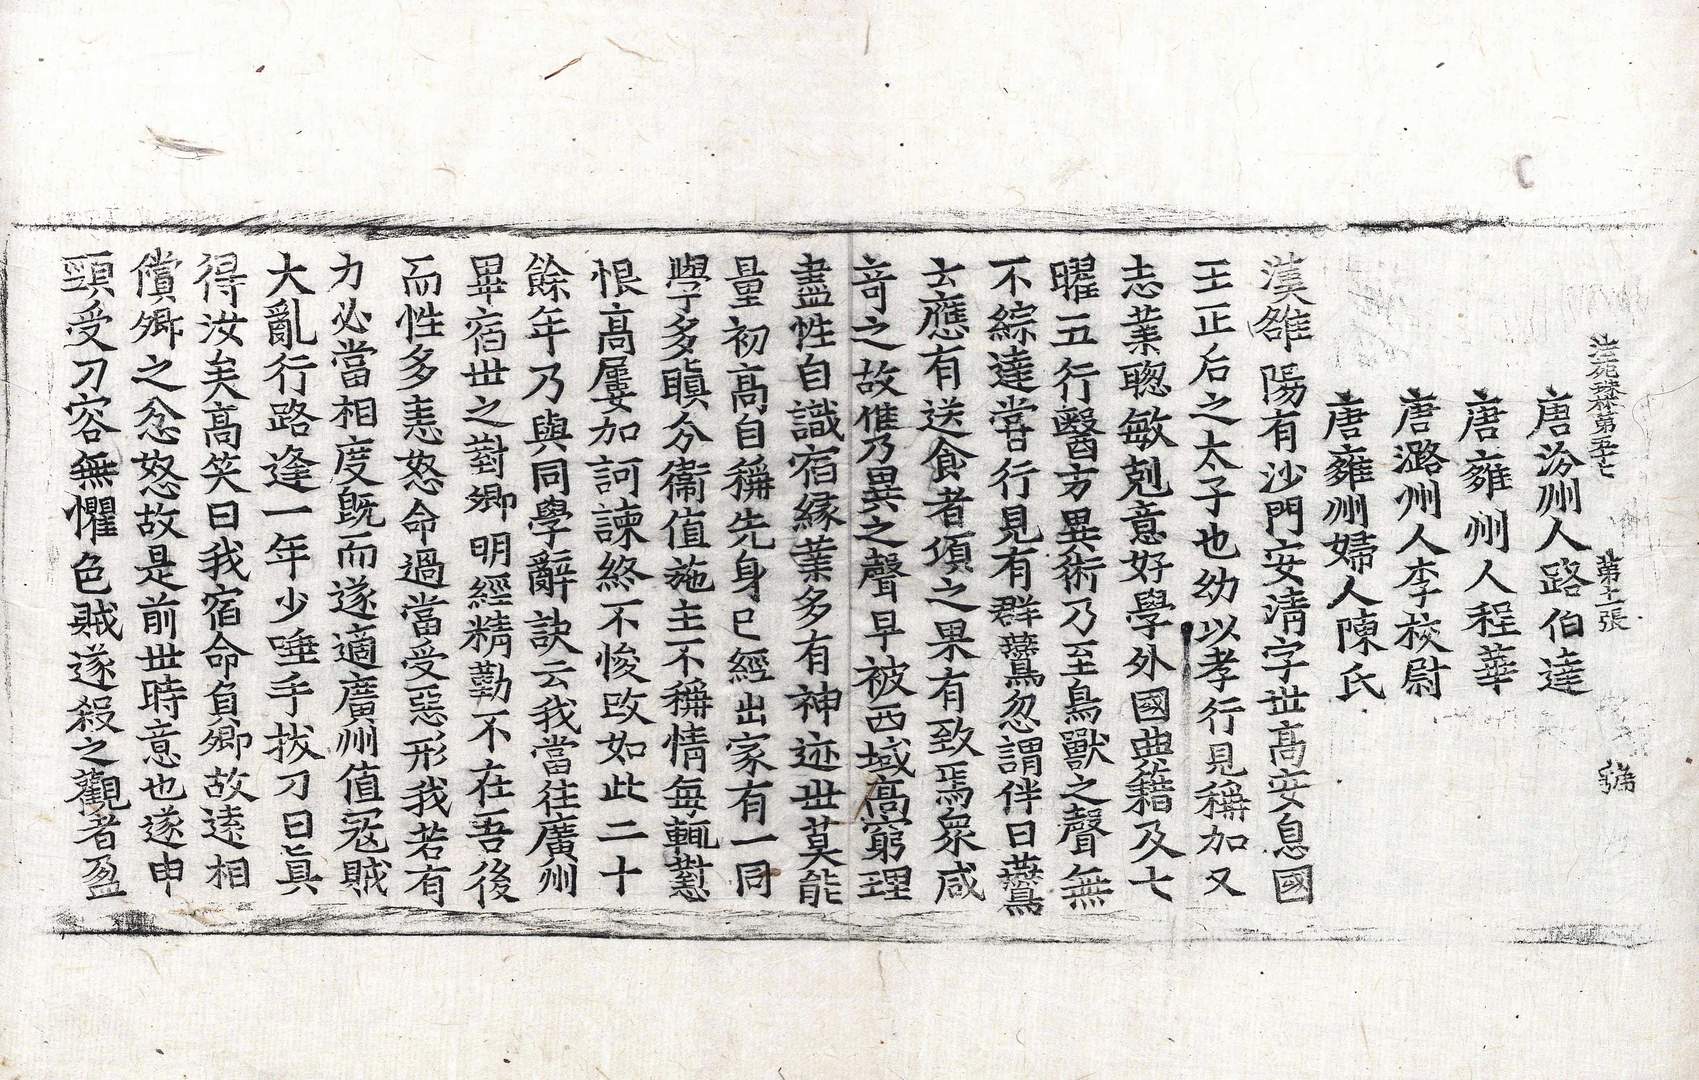 法苑珠林第五十七　第十一張　號
唐汾州人路伯達
唐雍州人程華
唐潞州人李校尉
唐雍州婦人陳氏
漢雒陽有沙門安清字世高安息國
王正后之太子也幼以孝行見稱加又
志業聦敏剋意好學外國典籍及七
曜五行醫方異術乃至鳥獸之聲無
不綜達甞行見有群鷰忽謂伴曰鷰
云應有送食者湏之果有致焉衆咸
竒之故儁乃異之聲早被西域高窮理
盡性自識宿縁業多有神迹世莫能
量初高自稱先身已經出家有一同
學多瞋分衞值施主不稱情每輒懟
恨高屢加訶諫終不悛改如此二十
餘年乃與同學辭訣云我當往廣州
畢宿世之對卿明經精勤不在吾後
而性多恚怒命過當受惡形我若有
力必當相度旣而遂適廣州值宼賊
大亂行路逢一年少唾手拔刀曰真
得汝矣高笑曰我宿命負卿故遠相
償卿之忿怒故是前世時意也遂申
頸受刀容無懼色賊遂殺之觀者盈